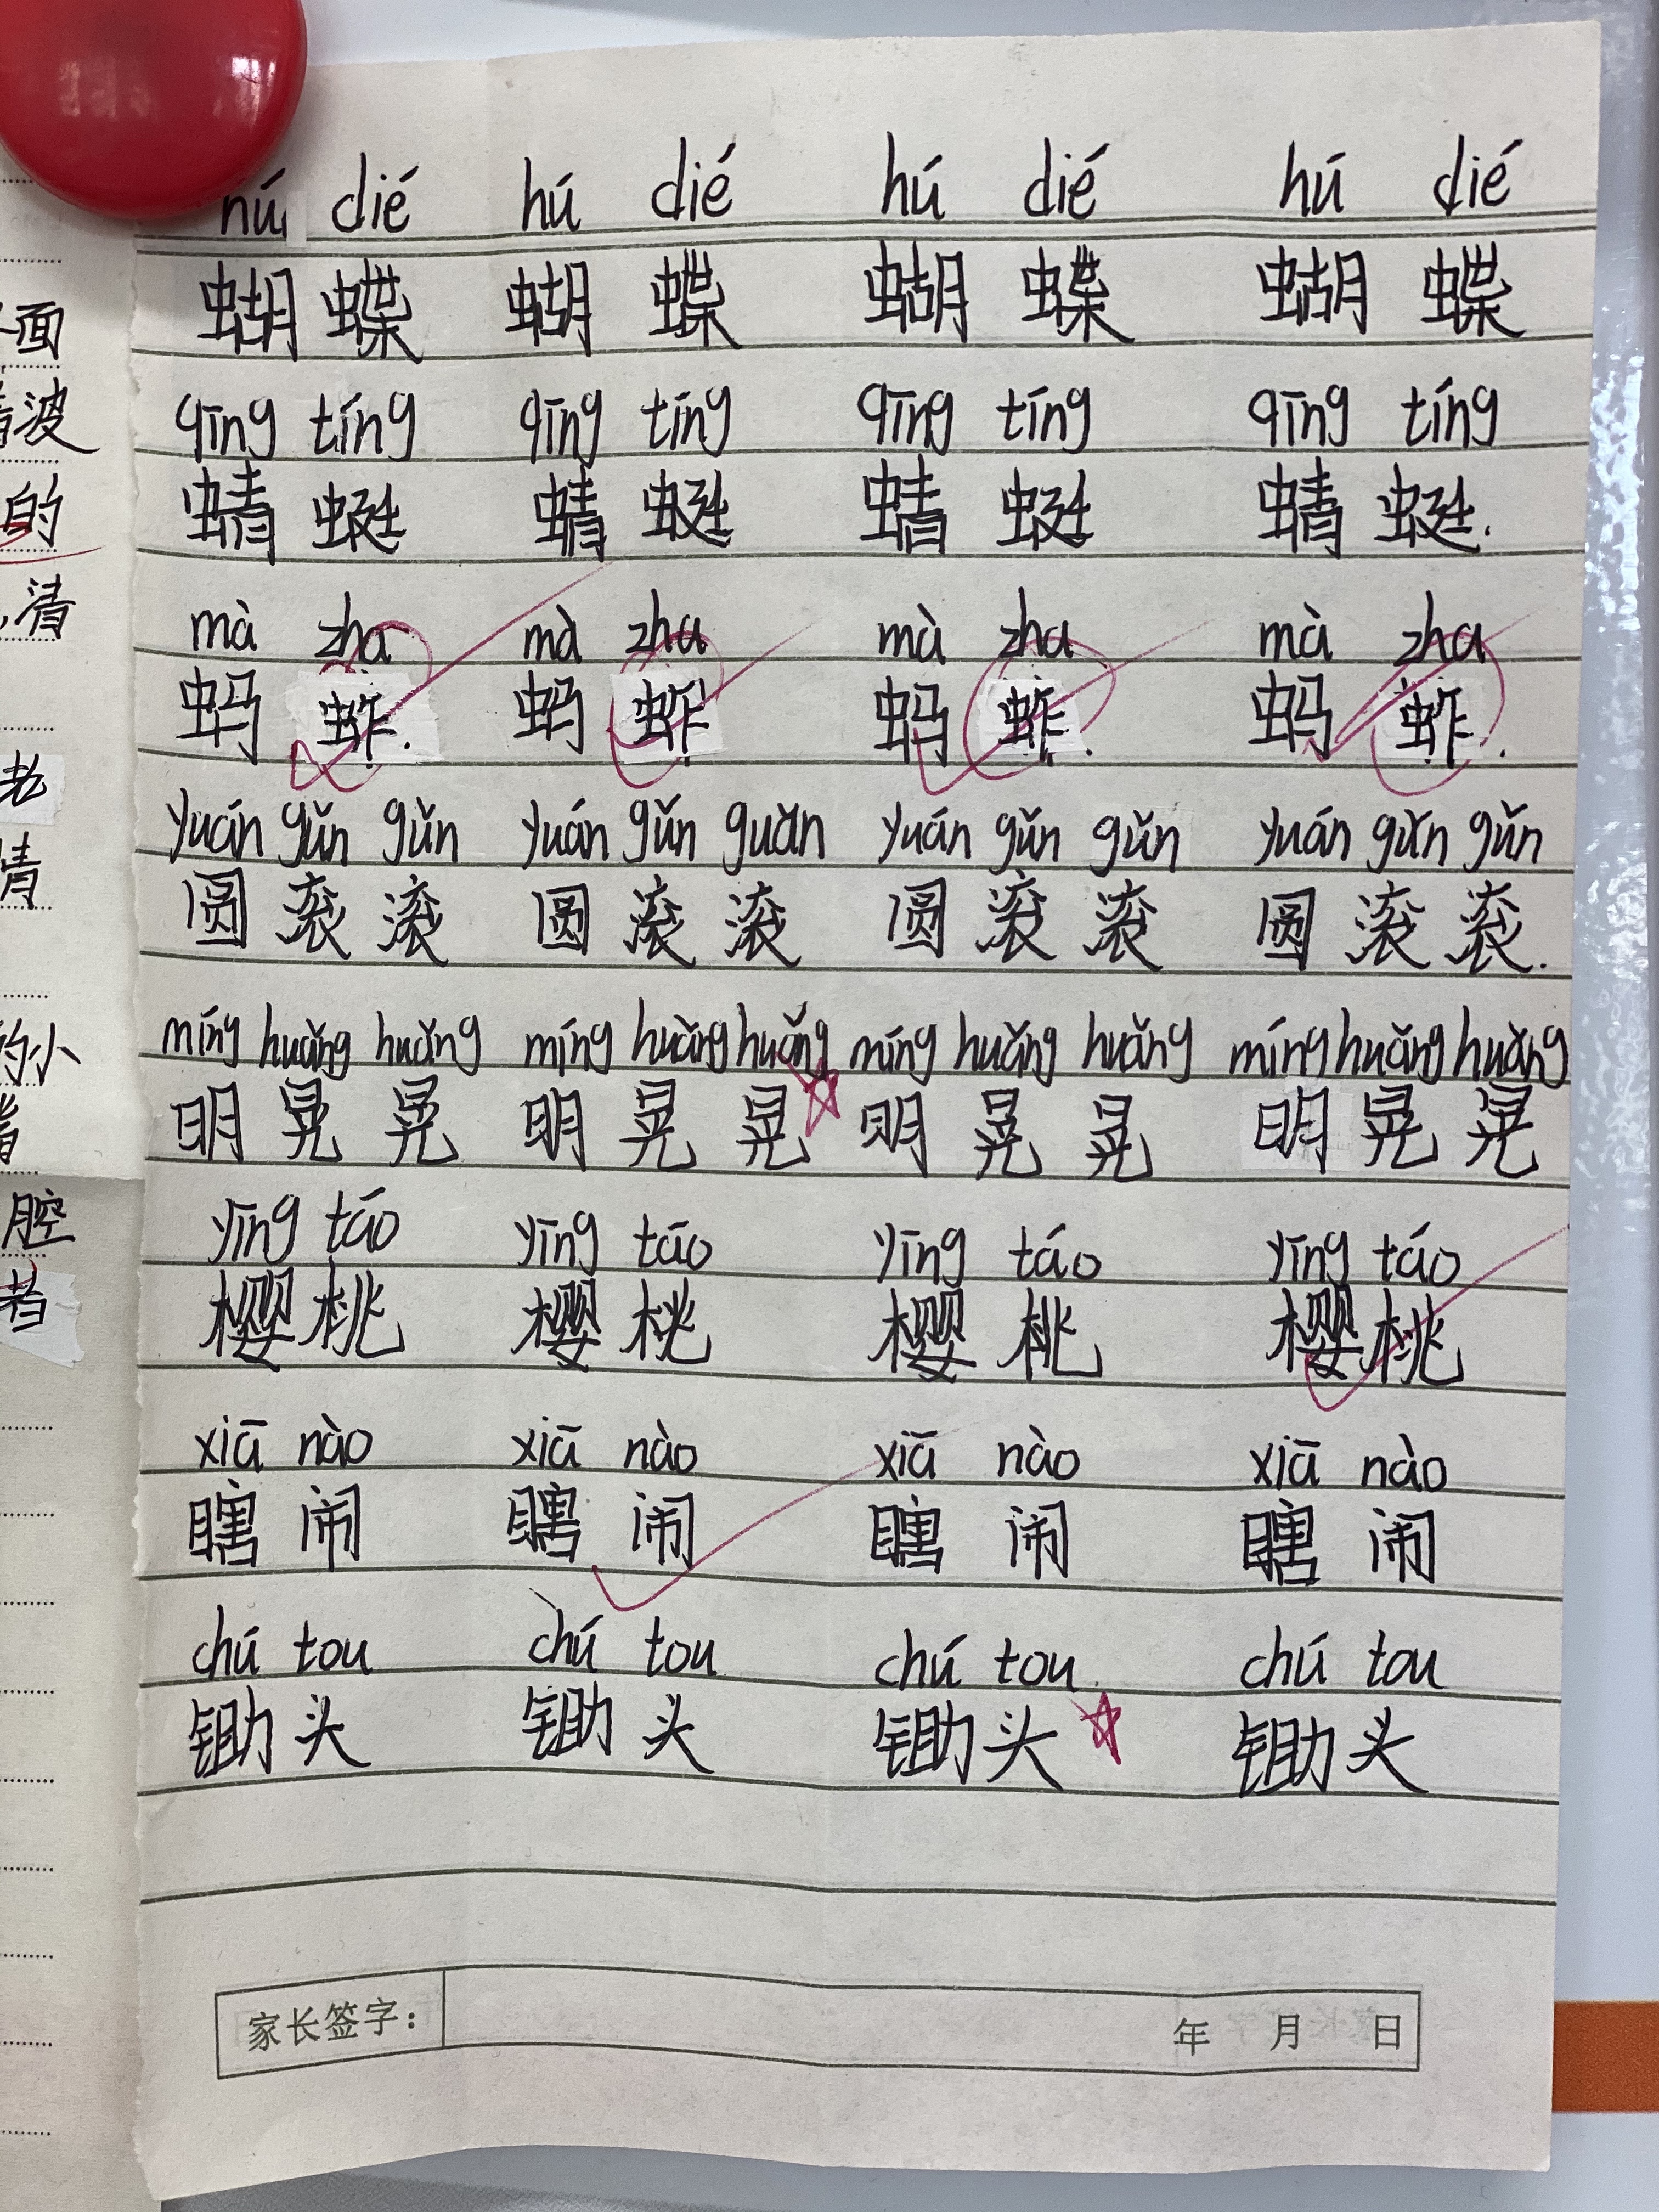 hú dié hú dié hú dié hú dié
蝴蝶 蝴蝶 蝴蝶 蝴蝶
qīng tíng qīng tíng qīng tíng qīng tíng
蜻蜓 蜻蜓 蜻蜓 蜻蜓.
mà zha mà zha mà zha mà zha
蚂蚱. 蚂蚱 蚂蚱. 蚂蚱.
yuán gǔn gǔn yuán gǔn guǎn yuán gǔn gǔn yuán gǔn gǔn
圆滚滚 圆滚滚 圆滚滚 圆滚滚.
míng huǎng huǎng míng huǎng huǎng míng huǎng huǎng míng huǎng huǎng
明晃晃 明晃晃 明晃晃 明晃晃
yīng táo yīng táo yīng táo yīng táo
樱桃 樱桃 樱桃 樱桃
xiā nào xiā nào xiā nào xiā nào
瞎闹 瞎闹 瞎闹 瞎闹
chú tou chú tou chú tou chú tou
锄头 锄头 锄头 锄头
家长签字： 年 月 日
面
波
的
清
老
情
的小
腔
着